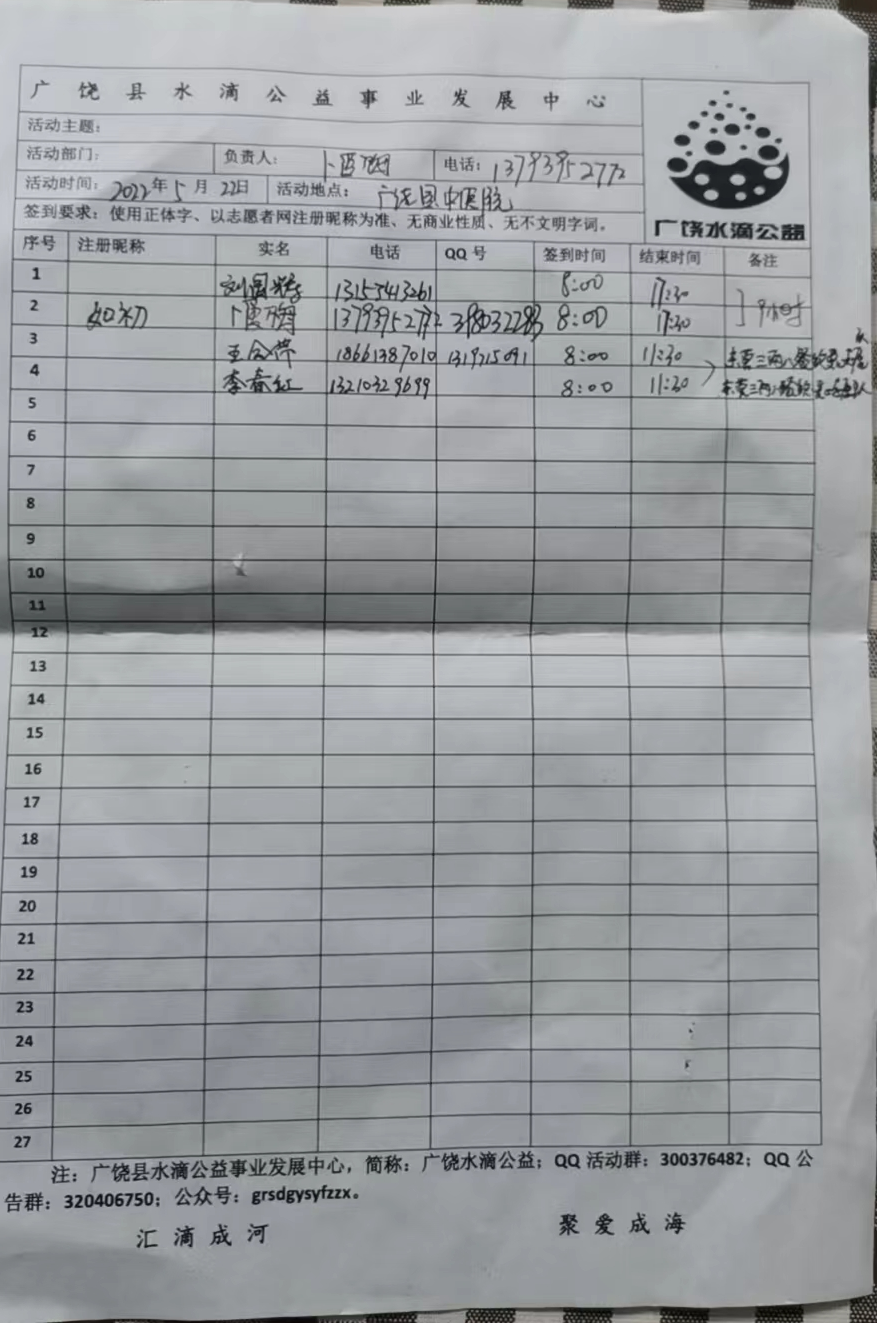 广饶县水滴公益事业发展中心
活动主题：
活动部门： 负责人： 卜 电话：13793952772
活动时间：2022年5月22日 活动地点：广饶县中医院
签到要求：使用正体字、以志愿者网注册昵称为准、无商业性质、无不文明字词。
广饶水滴公益
序号 注册昵称 实名 电话 QQ 号 签到时间 结束时间 备注
1 刘国 13155413261 8:00 17:30
2 如初 卜 13793952772 8:00 17:30 9小时
3 王 18661387010 1319215091 8:00 11:30
4 李春红 13210329699 8:00 11:30
5
6
7
8
9
10
11
12
13
14
15
16
17
18
19
20
21
22
23
24
25
26
27
注：广饶县水滴公益事业发展中心，简称：广饶水滴公益；QQ 活动群：300376482；QQ 公
告群：320406750；公众号：grsdgysyfzzx。
汇滴成河 聚爱成海